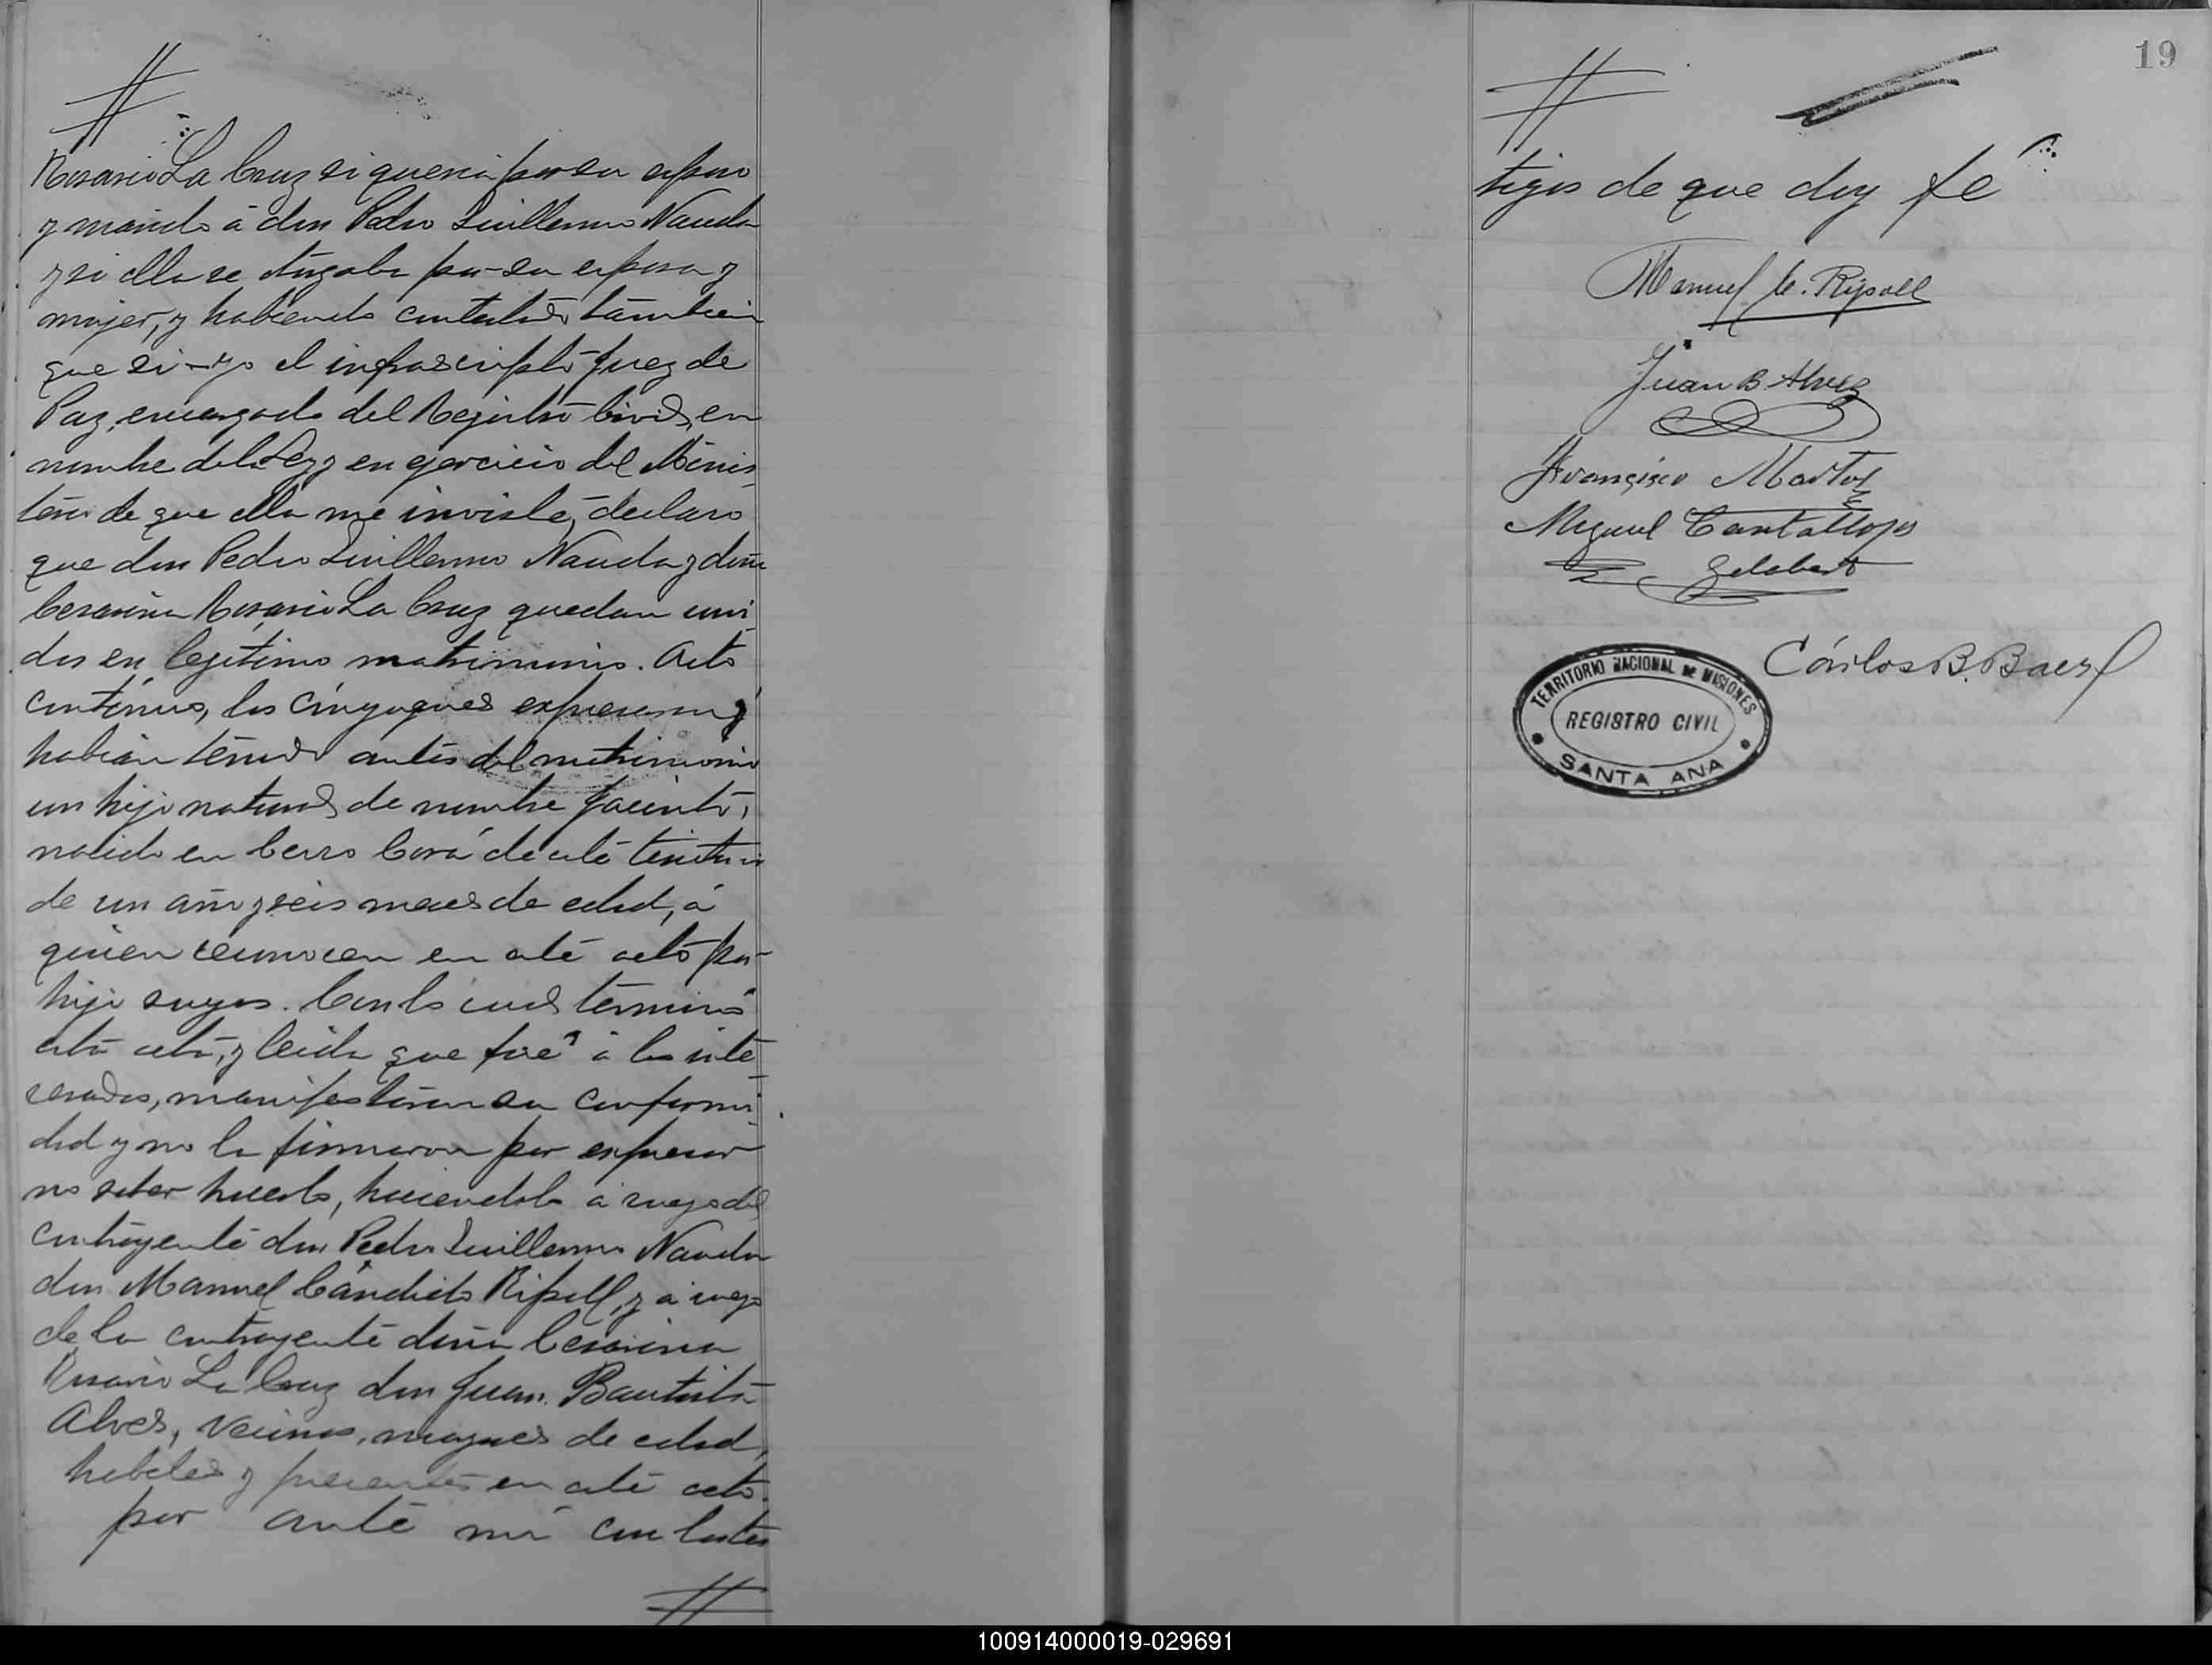 Rosario La Cruz si queria por su esposo
y marido á don Pedro Guillermo Nauda
y si ella se otorgaba por su esposa y
mujer, y habiendo contestado tambien
que si – yo el infrascripto Juez de
Paz, encargado del Registro Civil, en
nombre de la Ley y en ejercicio del Minis
terio de que ella me inviste, declaro
que don Pedro Guillermo Nauda y doña
Cesarina Rosario La Cruz quedan uni
dos en legítimo matrimonio. Acto
contínuo, los cónyugues expresaron q'
habian tenido antes del matrimonio
un hijo natural de nombre Jacinto,
nacido en Cerro Corá de este territorio
de un año y seis meses de edad, á
quien reconocen en este acto por
hijo suyos. Con lo cual terminó
esta acta, y leida que fué á los inte
resados, manifestaron su conformi
dad y no la firmaron por expresar
no saber hacerlo, haciendolo á ruego del
contrayente don Pedro Guillermo Nauda
don Manuel Cándido Ripoll, y á ruego
de la contrayente doña Cesarina
Rosario La Cruz don Juan Bautista
Alves, vecinos, mayores de edad,
habiles y presentes en este acto.
por ante mí con los tes
19
tigos de que doy fé
Manuel C. Ripoll
Juan B Alvez
Francisco Martos
Miguel Cantallops
Gelabert
Cárlos B. Baez
TERRITORIO NACIONAL DE MISIONES
REGISTRO CIVIL
SANTA ANA
100914000019-029691